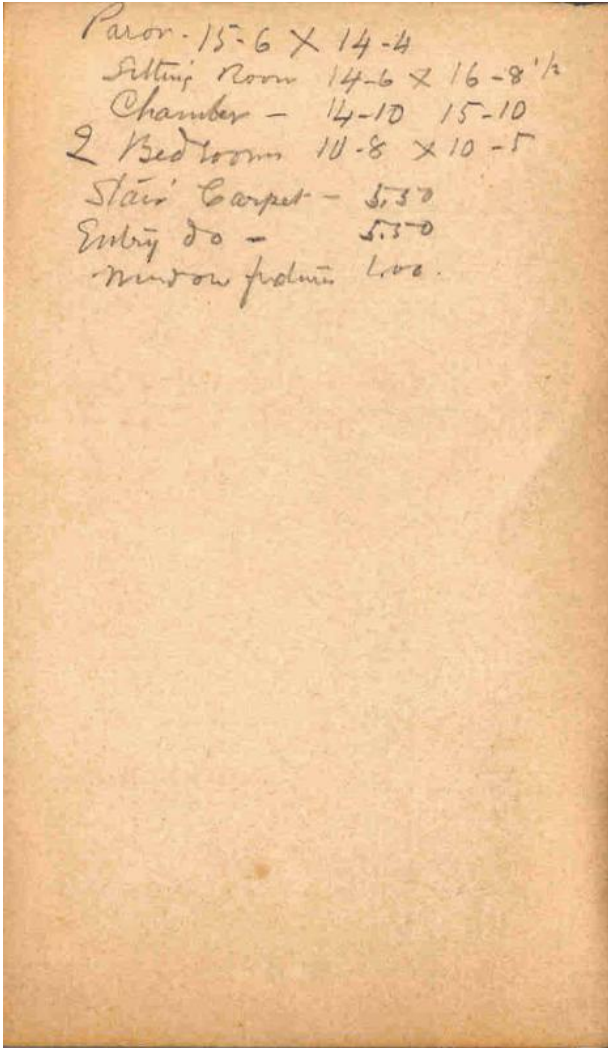 Paror - 15-6 X 14-4
Sitting Room 14-6 X 16-8 1/2
Chamber - 14-10 15-10
2 Bedrooms 10-8 X 10-5
Stair Carpet - 5.50
Entry do - 5.50
Window fixtures 1.00.